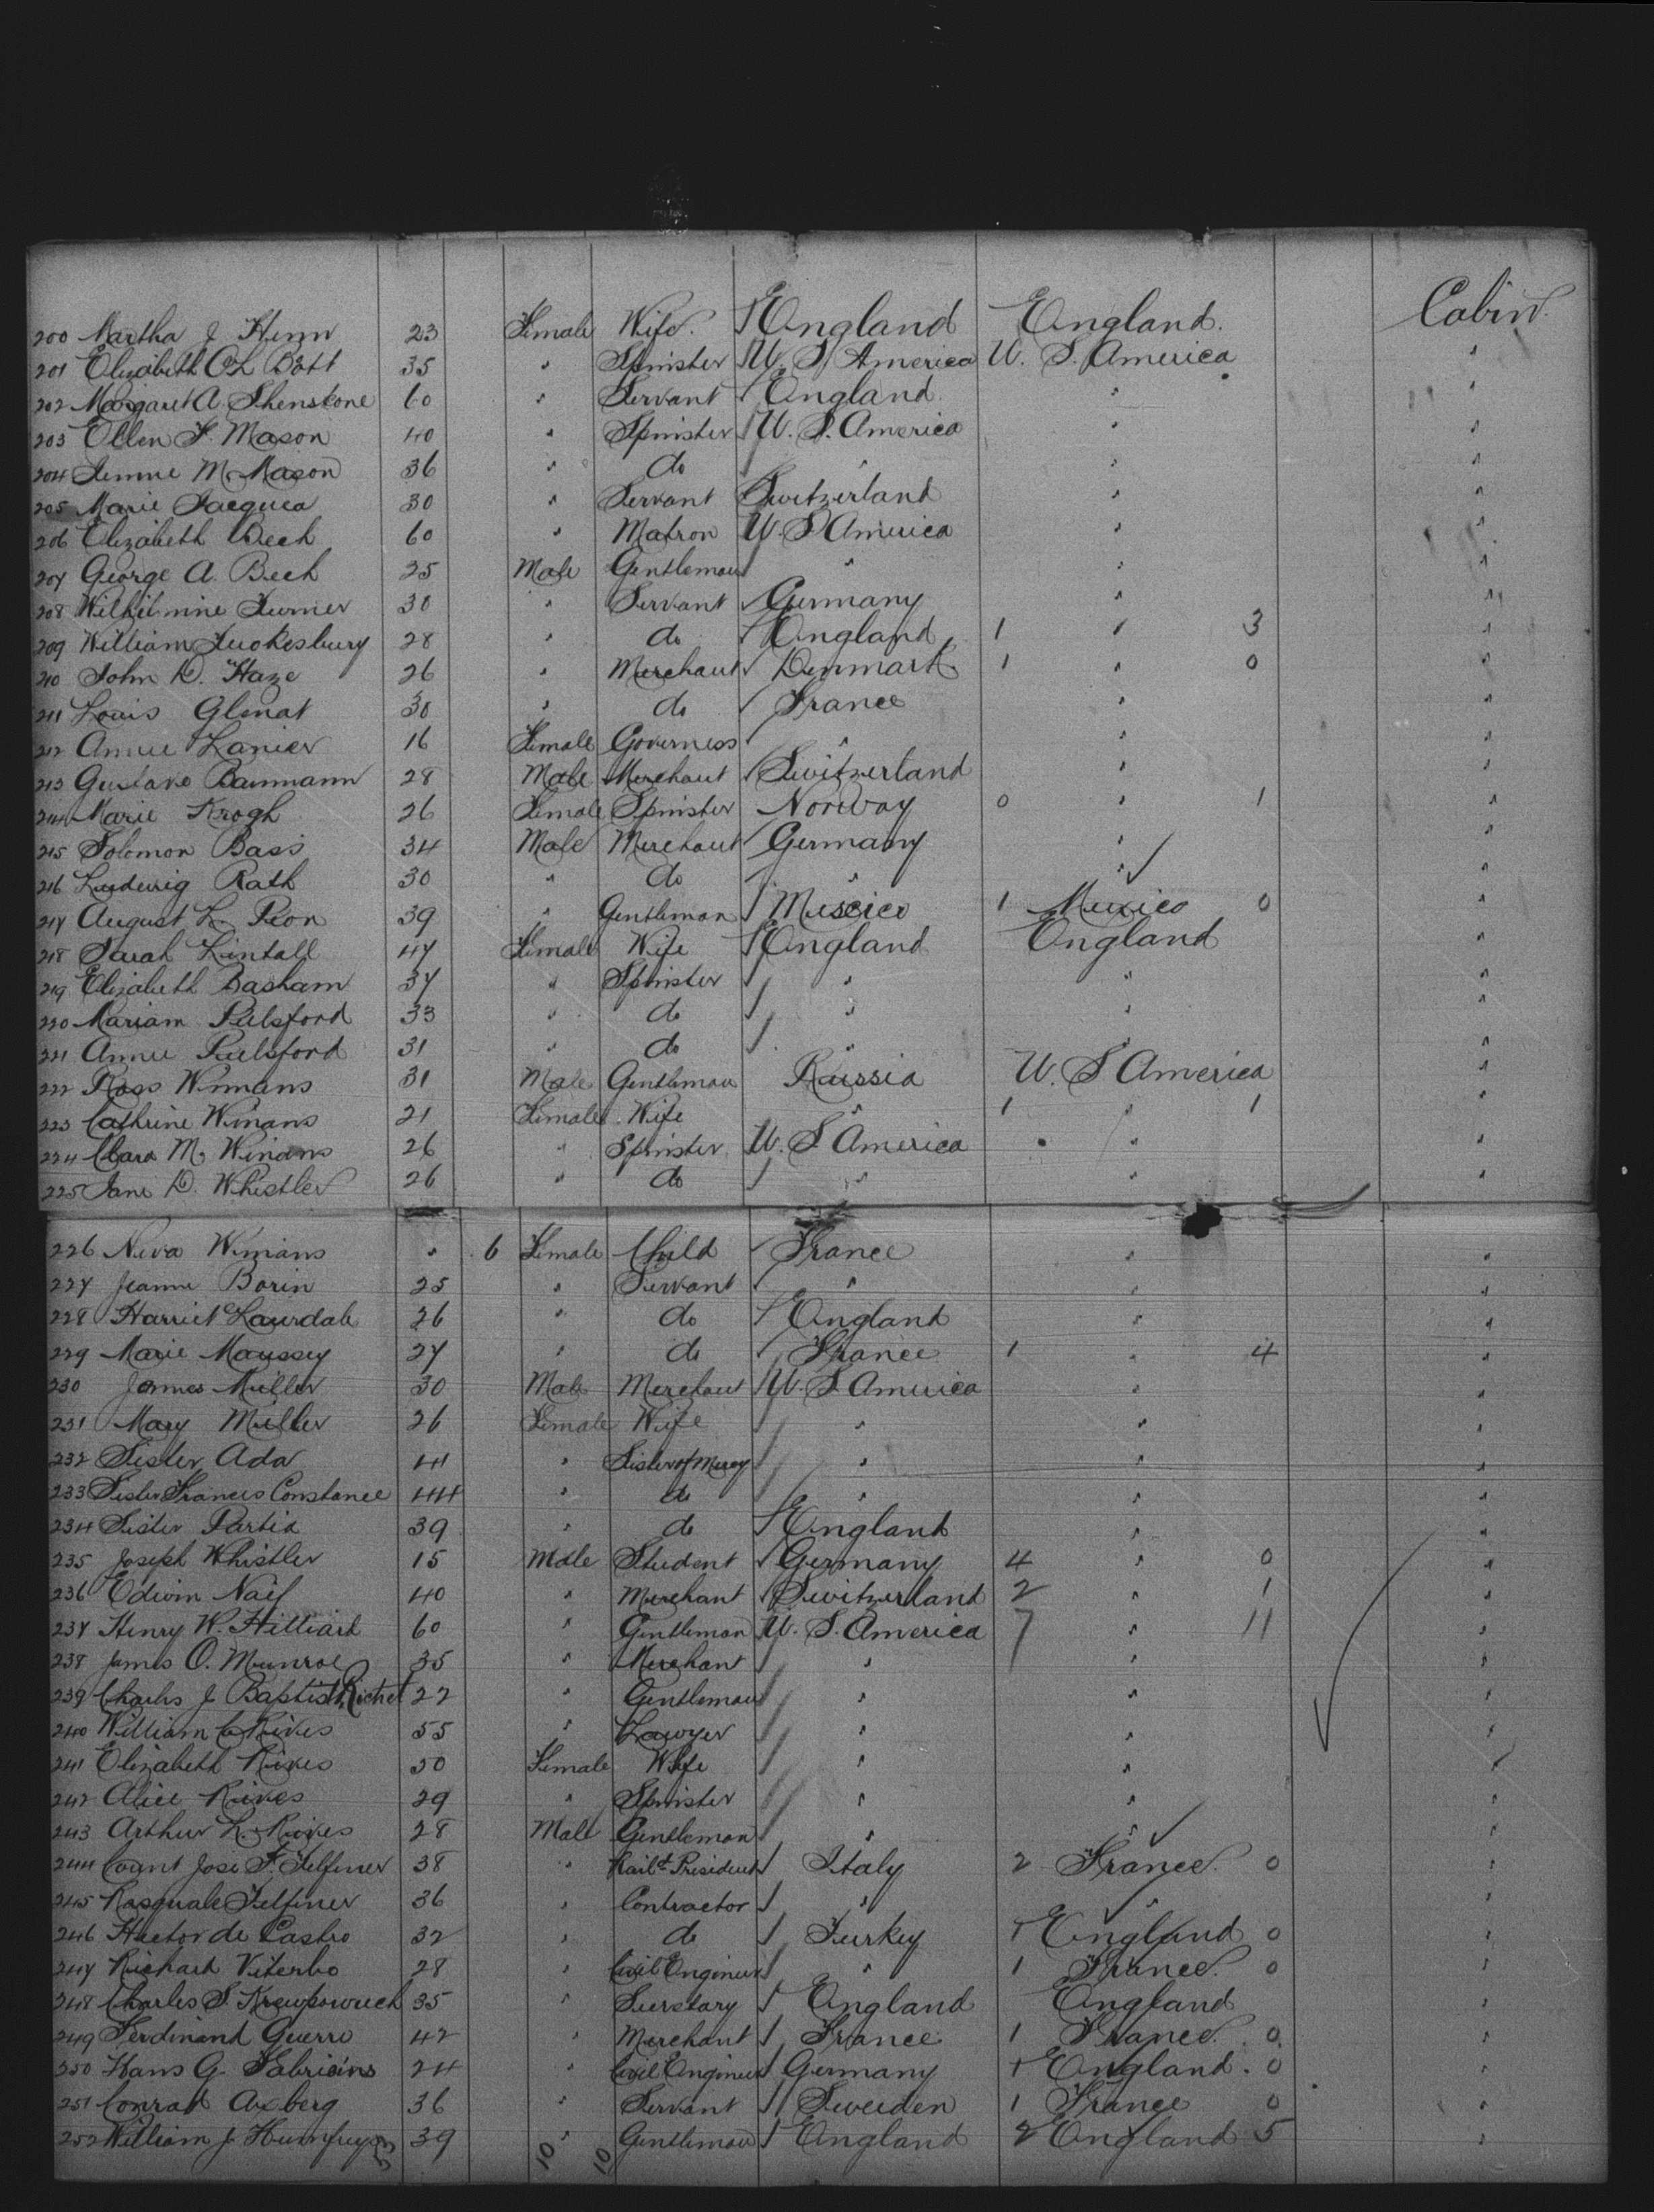 Cabin
200 Martha J Henn 23 Female Wife England England.
201 Elizabeth Bott 35 " Spinster U. S. America U. S. America "
202 Margaret A. Shenstone 60 " Servant England " "
203 Ellen F. Mason 40 " Spinster U. S. America " "
204 M. Mason 36 " do " " "
205 Marie Jacques 30 " Servant Switzerland " "
206 Elizabeth Beck 60 " Matron U. S America " "
207 George A. Beck 25 Male Gentleman " " "
208 Wilhilmine Turner 30 " Servant Germany " "
209 William Tuokesbury 28 " do England 1 " 3 "
210 John D. Haze 26 " Merchant Denmark 1 " 0 "
211 Louis Glenat 30 " do France " "
212 Annie Lanier 16 Female Governess " " "
213 Gustave Baumann 28 Male Merchant Switzerland " "
214 Marie Krogh 26 Female Spinster Norway 0 " 1 "
215 Solomon Bass 34 Male Merchant Germany " "
216 Ludwig Rath 30 " do " " "
217 August L. Peon 39 " Gentleman Mexico 1 Mexico 0 "
218 Sarah Lintall 47 Female Wife England England "
219 Elizabeth Basham 37 " Spinster " " "
220 Mariam Pulsford 33 " do " " "
221 Annie Pulsford 31 " do " "
222 Ross Winans 31 Male Gentleman Russia U. S America "
223 Cathrine Winans 21 Female Wife " 1 " 1 "
224 Clara M. Winans 26 " Spinster U. S America " "
225 Jane D. Whistler 26 " do " " "
226 Neva Winans " 6 Female Child France " "
227 Jeanne Borin 25 " Servant " " "
228 Harriet Laurdale 26 " do England " "
229 Marie Maussey 27 " do France 1 " 4 "
230 James Miller 30 Male Merchant U. S. America " "
231 Mary Miller 26 Female Wife " " "
232 Sister Ada 41 " Sister of Mercy " " "
233 Sister Francis Constance 44 " do " " "
234 Sister Partia 39 " do England " "
235 Joseph Whistler 15 Male Student Germany 4 " 0 "
236 Edwin Naif 40 " Merchant Switzerland 2 " 1 "
237 Henry W. Hilliard 60 " Gentleman U. S. America 7 " 11 "
238 James O. Munroe 35 " Merchant " " "
239 Charles J Baptist Richet 22 " Gentleman " " "
240 William C Rives 55 " Lawyer " " "
241 Elizabeth Rives 50 Female Wife " " "
242 Alice Rives 29 " Spinster " " "
243 Arthur L. Rives 28 Male Gentleman " " "
244 Count Jose F. Telfiner 38 " Raild. President Italy 2 France 0 "
245 Pasquale Telfiner 36 " Contractor " " "
246 Hector de Castro 32 " do Turkey 1 England 0 "
247 Richard Vitenbo 28 " Civil Engineer " 1 France 0 "
248 Charles S. 35 " Secretary England England "
249 Ferdinand Guerre 42 " Merchant France 1 France 0 "
250 Hans G. Fabricins 24 " Civil Engineer Germany 1 England 0 "
251 Conrad Axberg 36 " Servant Sweden 1 France 0 "
252 William J. Humfreys 39 " Gentleman England 2 England 5 "
53 10 10